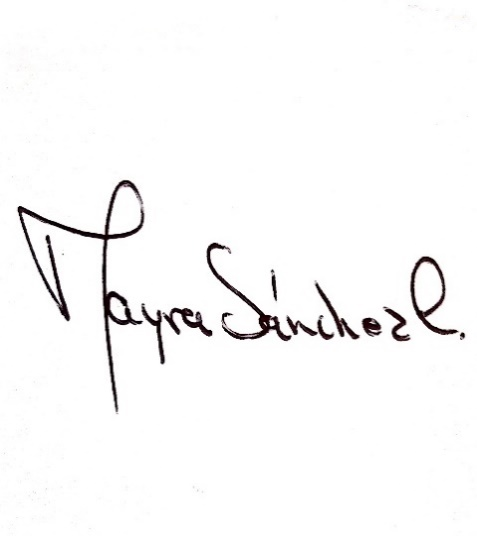 Mayra Sánchez C.